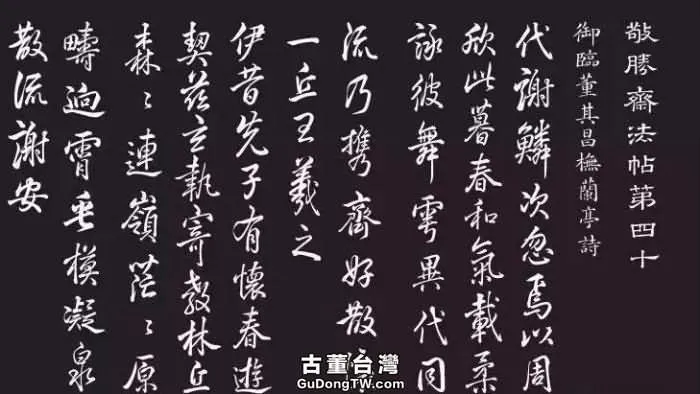 敬勝齋法帖第四十
御臨董其昌橅蘭亭詩
代謝鱗次忽焉以周
欣此暮春和氣載柔
詠彼舞雩異代同
流乃携齊好散
一丘王羲之
伊昔先子有懷春遊
契茲言執寄敖林丘
森〻連嶺茫〻原
疇逈霄垂模凝泉
散流謝安
古董台灣
GuDongTW.com